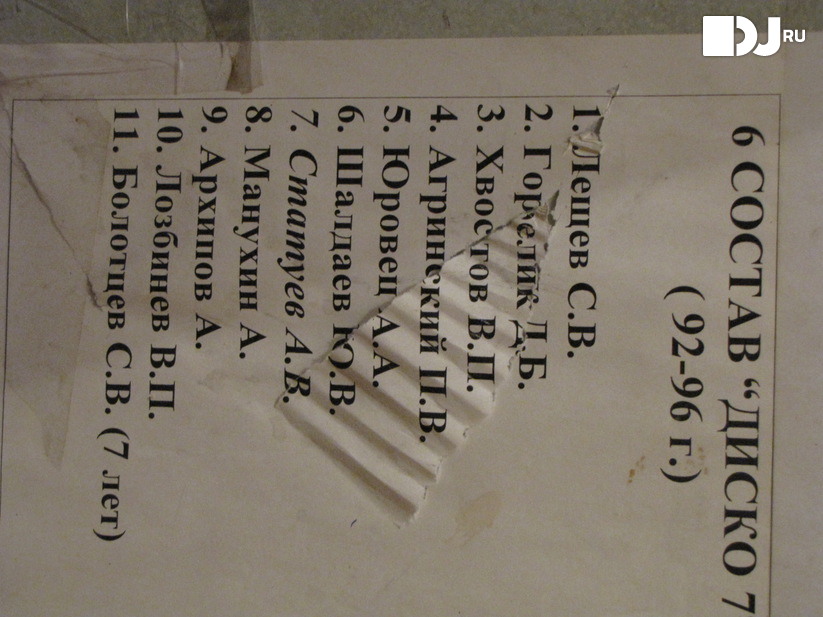 6 СОСТАВ “ДИСКО 7
( 92-96 г.)
1. Лещев С.В.
2. Горелик Д.Б.
3. Хвостов В.П.
4. Агринский П.В.
5. Юровец А.А.
6. Шалдаев Ю.В.
7. Статуев А.В.
8. Манухин А.
9. Архипов А.
10. Лозбинев В.П.
11. Болотцев С.В. (7 лет)
DJ RU